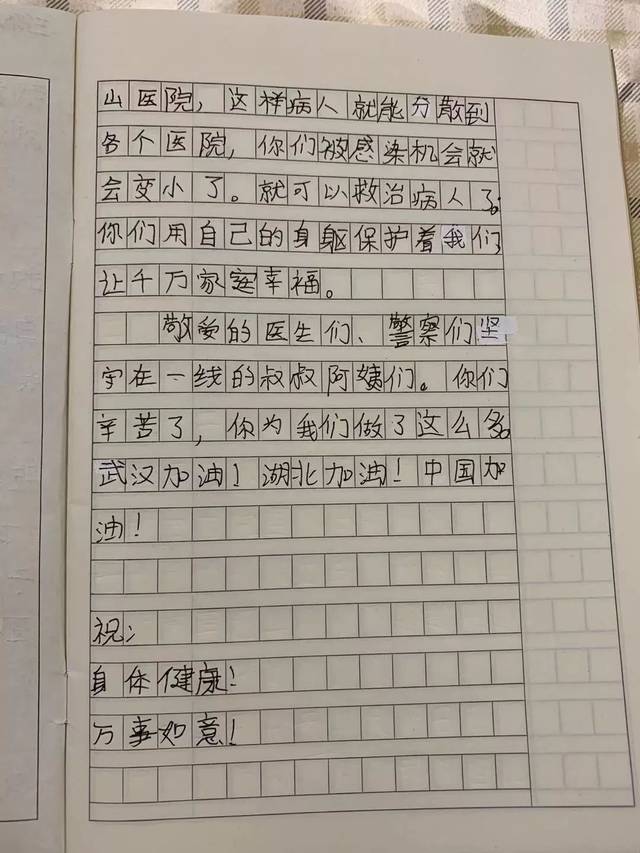 山医院，这样病人就能分散到
各个医院，你们被感染机会就
会变小了。就可以救治病人了。
你们用自己的身躯保护着我们
让千万家庭幸福。
敬爱的医生们、警察们坚
守在一线的叔叔阿姨们。你们
辛苦了，你为我们做了这么多。
武汉加油！湖北加油！中国加
油！
祝：
身体健康！
万事如意！